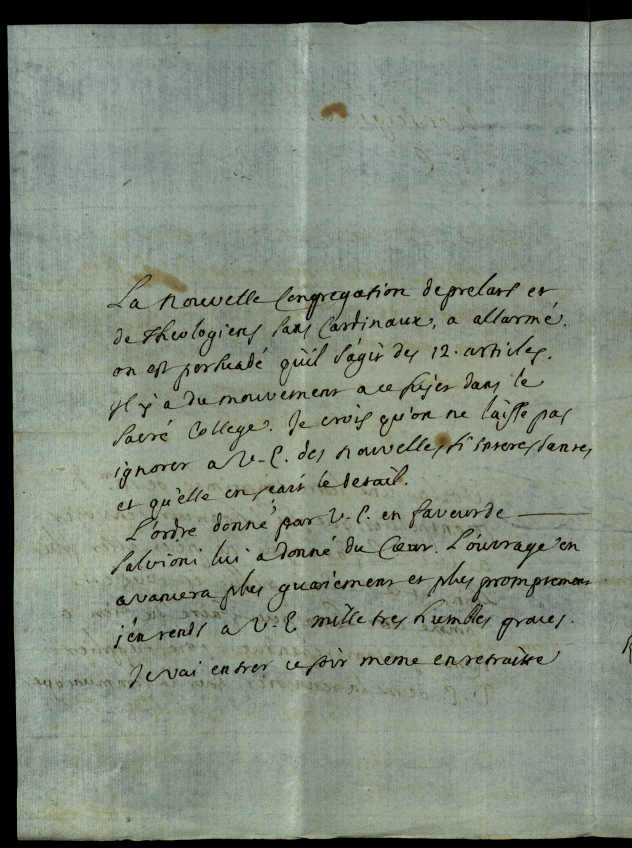 La nouvelle Congregation de prelats et
de Theologiens sans Cardinaux, a allarmé.
on est persuadé qu'il s'agit des 12. articles.
Il y a du mouvement a ce sujet dans le
Sacré College. Je crois qu'on ne laisse pas
ignorer a V. E. des nouvelles si interessantes
et qu'elle en sçait le detail.
L'ordre donné par V. E. en faveur de
Salvioni lui a donné du Cœur. L'ouvrage en
avancera plus guaiement et plus promptement
j'en rends a V. E. mille tres humbles graces.
Je vai entrer ce soir meme en retraitte